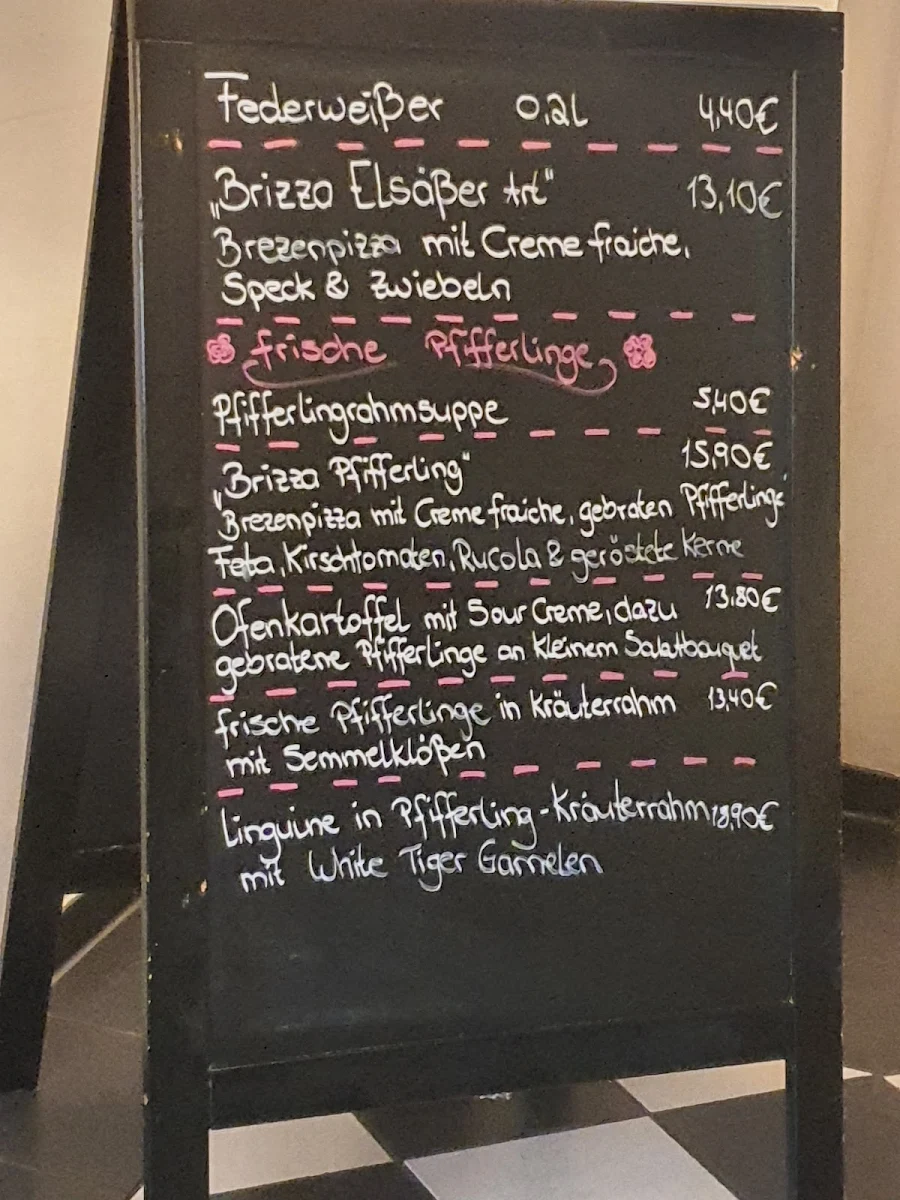 Federweißer 0,2l 4,40€
„Brizza Elsäßer Art“ 13,10€
Brezenpizza mit Creme fraiche,
Speck & Zwiebeln
frische Pfifferlinge
Pfifferlingrahmsuppe 5,40€
„Brizza Pfifferling“ 15,90€
Brezenpizza mit Creme fraiche, gebraten Pfifferlinge
Feta, Kirschtomaten, Rucola & geröstete Kerne
Ofenkartoffel mit Sour Creme, dazu 13,80€
gebratene Pfifferlinge an kleinem Salatbouquet
frische Pfifferlinge in Kräuterrahm 13,40€
mit Semmelklößen
Linguine in Pfifferling-Kräuterrahm 18,90€
mit White Tiger Garnelen